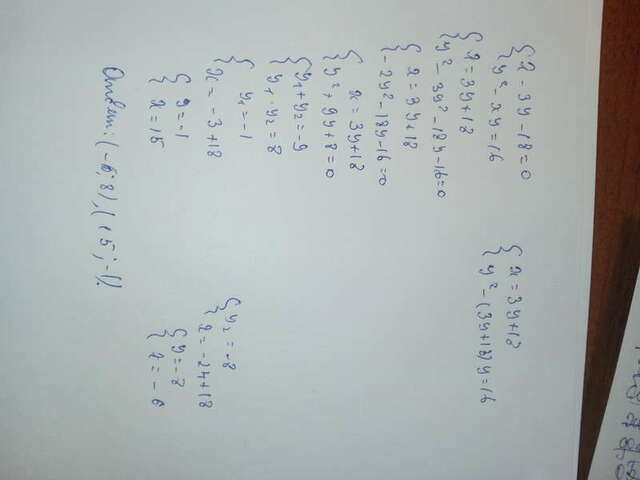 { x - 3y - 18 = 0
{ y² - xy = 16
{ x = 3y + 18
{ y² - (3y + 18) y = 16
{ x = 3y + 18
{ y² - 3y² - 18y - 16 = 0
{ x = 3y + 18
{ -2y² - 18y - 16 = 0
{ x = 3y + 18
{ y² + 9y + 8 = 0
{ y₁ + y₂ = -9
{ y₁ · y₂ = 8
{ y₁ = -1
{ x = -3 + 18
{ y = -1
{ x = 15
{ y₂ = -8
{ x = -24 + 18
{ y = -8
{ x = -6
Ответ: (-6; 8), (15; -1).